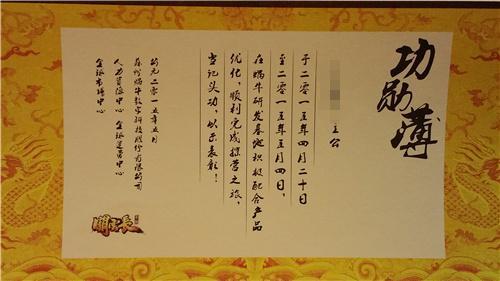 功勋薄
主公
于二零一五年四月二十日
至二零一五年五月四日，
在蜗牛研发基地积极配合产品
优化，顺利完成探营之旅，
当记头功，以示表彰！
公元二零一五年五月
苏州蜗牛数字科技股份有限公司
人力资源中心 全球运营中心
全球市场中心
關雲長